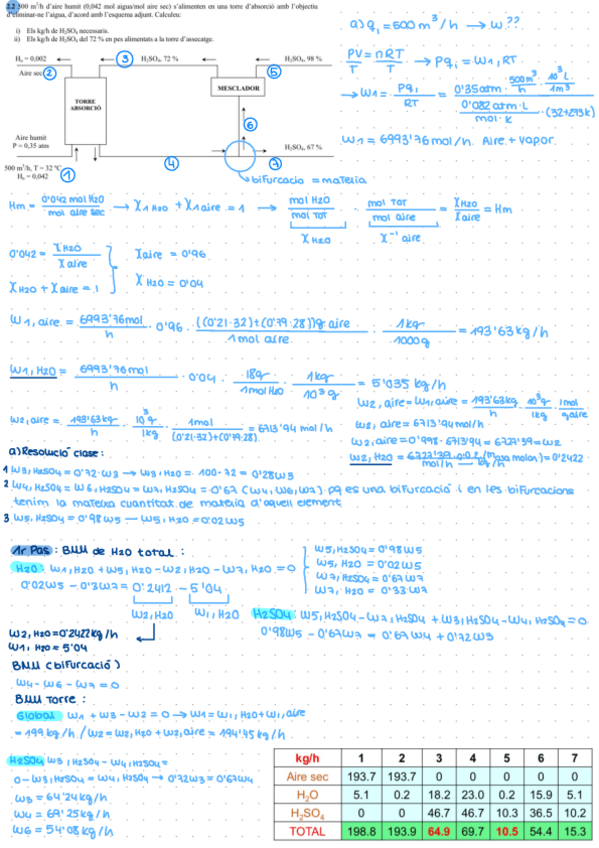 2.2 500 m³/h d'aire humit (0,042 mol aigua/mol aire sec) s'alimenten en una torre d'absorció amb l'objectiu
d'eliminar-ne l'aigua, d'acord amb l'esquema adjunt. Calculeu:
i) Els kg/h de H₂SO₄ necessaris.
ii) Els kg/h de H₂SO₄ del 72 % en pes alimentats a la torre d'assecatge.
Hₛ = 0,002
Aire sec
2
3
H₂SO₄, 72 %
H₂SO₄, 98 %
5
TORRE
ABSORCIÓ
MESCLADOR
6
Aire humit
P = 0,35 atm
H₂SO₄, 67 %
4
7
500 m³/h, T = 32 ºC
Hₑ = 0,042
1
bifurcacio = matèria
a) q₁ = 500 m³/h → w ??
PV/T = nRT/T → Pq₁ = w₁, RT
→ w₁ = Pq₁/RT = 0'35 atm · 500 m³/h · 10³ L/1 m³ / 0'082 atm·L/mol·K · (32+273K)
w₁ = 6993'76 mol/h. Aire + vapor.
Hm = 0'042 mol H₂O/mol aire sec → X₁H₂O + X₁aire = 1 → mol H₂O/mol TOT · mol TOT/mol aire = X H₂O/X aire = Hm
X H₂O
X⁻¹ aire
0'042 = X H₂O/X aire
X aire = 0'96
X H₂O + X aire = 1
X H₂O = 0'04
W₁, aire = 6993'76 mol/h · 0'96 · ((0'21·32)+(0'79·28)) g aire/1 mol aire · 1 kg/1000 g = 193'63 kg/h
W₁, H₂O = 6993'76 mol/h · 0'04 · 18g/1 mol H₂O · 1 kg/10³ g = 5'035 kg/h
w₂, aire = 193'63 kg/h · 10³ g/1 kg · 1 mol/(0'21·32)+(0'79·28) = 6713'94 mol/h
w₂, aire = w₁, aire = 193'63 kg/h · 10³ g/1 kg · 1 mol/g aire
w₂, aire = 6713'94 mol/h
w₂, aire = 0'998 · 6713'94 = 6727'39 = w₂
a) Resolució classe:
1 W₃, H₂SO₄ = 0'72 · w₃ → w₃, H₂O = 100 - 72 = 0'28 w₃
2 w₄, H₂SO₄ = w₆, H₂SO₄ = w₇, H₂SO₄ = 0'67 (w₄, w₆, w₇) pq es una bifurcació i en les bifurcacions
tenim la mateixa cuantitat de matèria d'aquell element
3 w₅, H₂SO₄ = 0'98 w₅ — w₅, H₂O = 0'02 w₅
1r Pas: BMM de H₂O total:
H₂O: w₁, H₂O + w₅, H₂O - w₂, H₂O - w₇, H₂O = 0
0'02w₅ - 0'3w₇ = 0'2412 - 5'04
w₂, H₂O
w₁, H₂O
w₅, H₂SO₄ = 0'98w₅
w₅, H₂O = 0'02w₅
w₇, H₂SO₄ = 0'67w₇
w₇, H₂O = 0'33w₇
H₂SO₄: w₅, H₂SO₄ - w₇, H₂SO₄ + w₃, H₂SO₄ - w₄, H₂SO₄ = 0
0'98w₅ - 0'67w₇ = 0'67w₄ + 0'72w₃
w₂, H₂O = 0'2422 kg/h
w₁, H₂O = 5'04
BMM (bifurcació)
w₄ - w₆ - w₇ = 0
BMM Torre:
Global: w₁ + w₃ - w₂ = 0 → w₁ = w₁, H₂O + w₁, aire
= 199 kg/h / w₂ = w₂, H₂O + w₂, aire = 194'45 kg/h.
H₂SO₄ w₃, H₂SO₄ - w₄, H₂SO₄ =
0 - w₃, H₂SO₄ = w₄, H₂SO₄ → 0'72w₃ = 0'67w₄
w₃ = 64'24 kg/h
w₄ = 69'25 kg/h
w₆ = 54'08 kg/h
kg/h 1 2 3 4 5 6 7
Aire sec 193.7 193.7 0 0 0 0 0
H₂O 5.1 0.2 18.2 23.0 0.2 15.9 5.1
H₂SO₄ 0 0 46.7 46.7 10.3 36.5 10.2
TOTAL 198.8 193.9 64.9 69.7 10.5 54.4 15.3